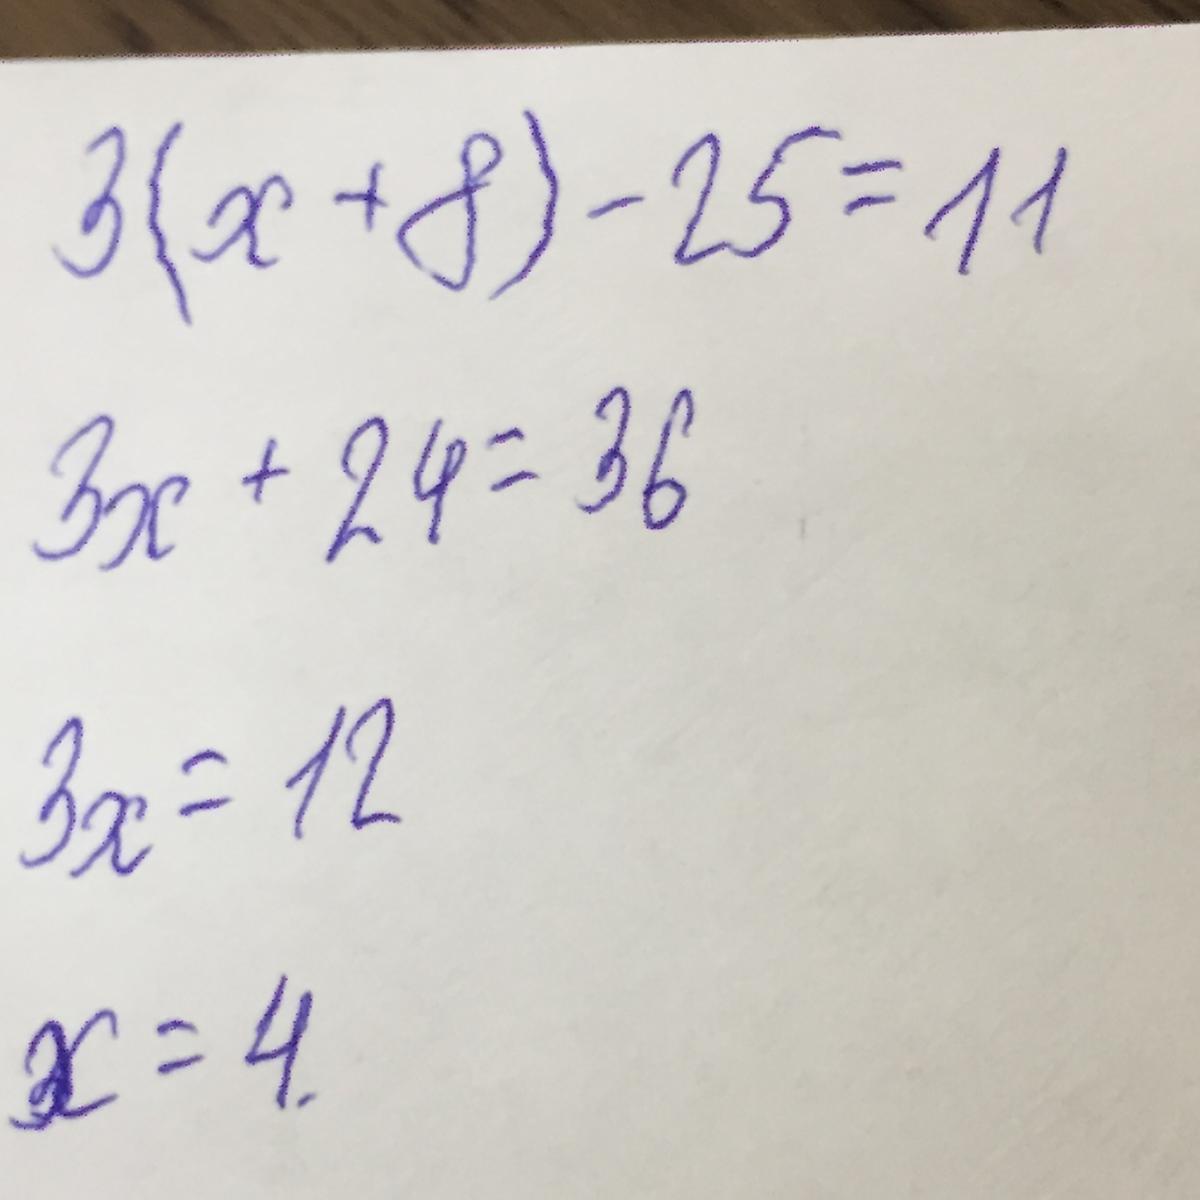 3(x + 8) - 25 = 11
3x + 24 = 36
3x = 12
x = 4.